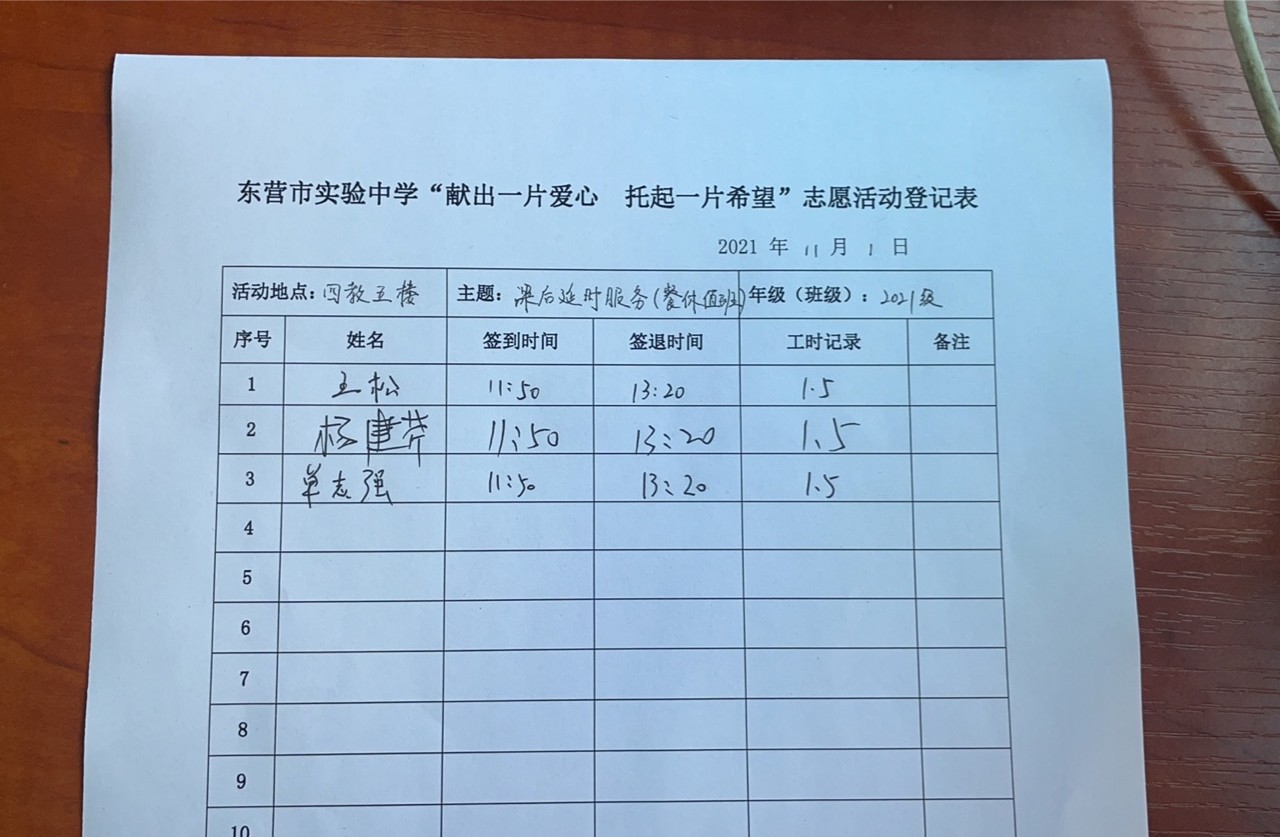 东营市实验中学“献出一片爱心 托起一片希望”志愿活动登记表
2021 年 11 月 1 日
活动地点：四教五楼 主题：课后延时服务（餐休值班） 年级（班级）：2021级
序号 姓名 签到时间 签退时间 工时记录 备注
1 王松 11:50 13:20 1.5
2 杨建 11:50 13:20 1.5
3 单志强 11:50 13:20 1.5
4
5
6
7
8
9
10